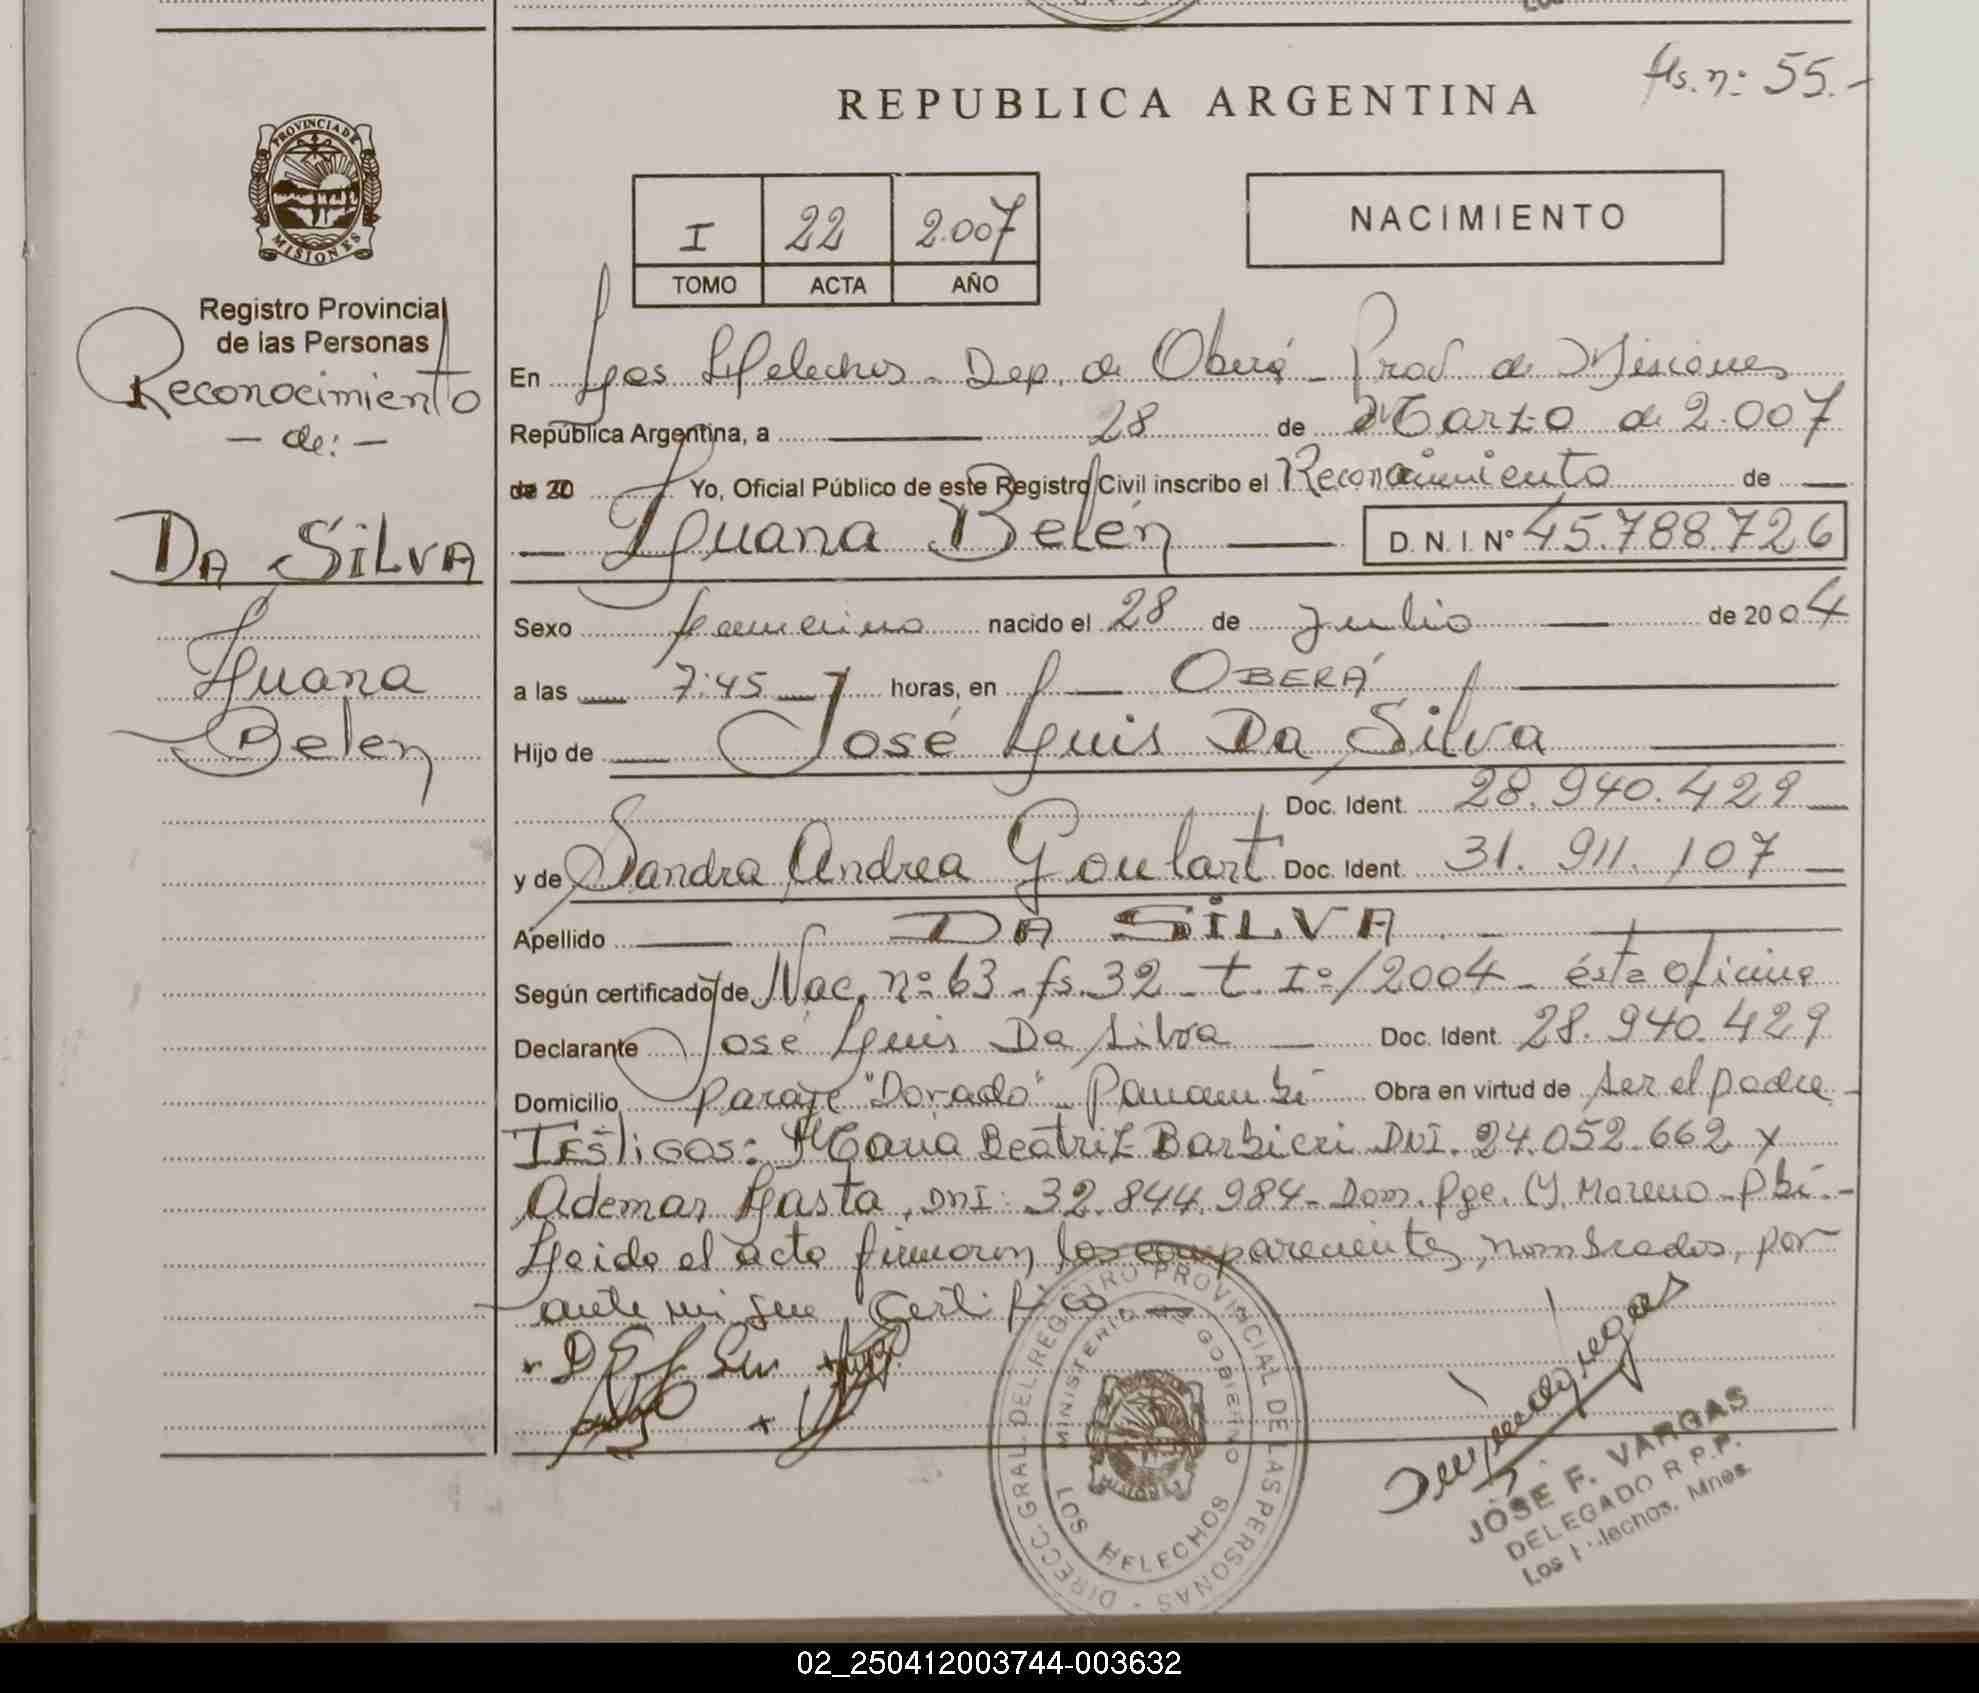 fs. nº 55.-
REPUBLICA ARGENTINA
PROVINCIA DE MISIONES
I 22 2.007
TOMO ACTA AÑO
NACIMIENTO
Registro Provincial
de las Personas
Reconocimiento
- de: -
DA SILVA
Luana
Belén
En Los Helechos - Dep. de Oberá - Prov. de Misiones
República Argentina, a 28 de Marzo de 2.007
de 20 Yo, Oficial Público de este Registro Civil inscribo el Reconocimiento de
Luana Belén D.N.I. Nº 45.788.726
Sexo femenino nacido el 28 de Julio de 2004
a las 7:45 horas, en OBERÁ
Hijo de José Luis Da Silva
Doc. Ident. 28.940.429
y de Sandra Andrea Goulart Doc. Ident. 31.911.107
Apellido DA SILVA
Según certificado de Nac. nº 63 - fs. 32 - t. Iº/2004 - ésta oficina
Declarante José Luis Da Silva Doc. Ident. 28.940.429
Domicilio paraje "Dorado" - Panambí Obra en virtud de ser el padre -
TESTIGOS: María Beatriz Barbieri DNI. 24.052.662 y
Ademar Gasta, DNI: 32.844.984 - Dom. Pje. M. Moreno - Pbí. -
Leído el acta firmaron los comparecientes, nombrados, por
ante mi que Certifico. -
DIRECC. GRAL. DEL REGISTRO PROVINCIAL DE LAS PERSONAS
MINISTERIO DE GOBIERNO
LOS HELECHOS
JOSE F. VARGAS
DELEGADO R.P.P.
Los Helechos, Mnes.
02_250412003744-003632